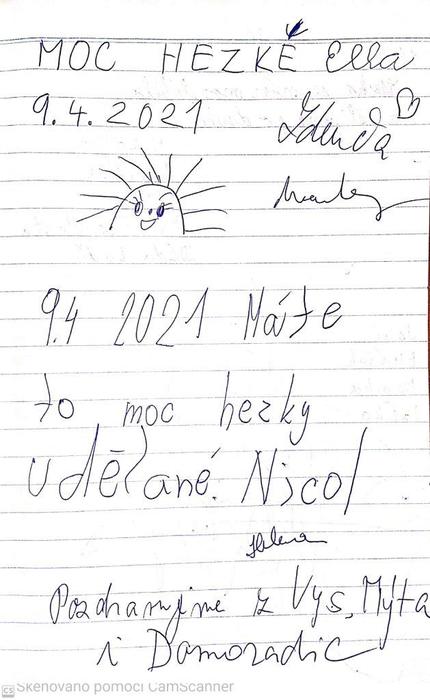 MOC HEZKÉ Ella
9.4.2021 Zdenda
9.4 2021 Máte
to moc hezky
udělané. Nicol
Helena
Pozdravujeme z Vys. Mýta
i Domoradic
Skenováno pomocí CamScanner